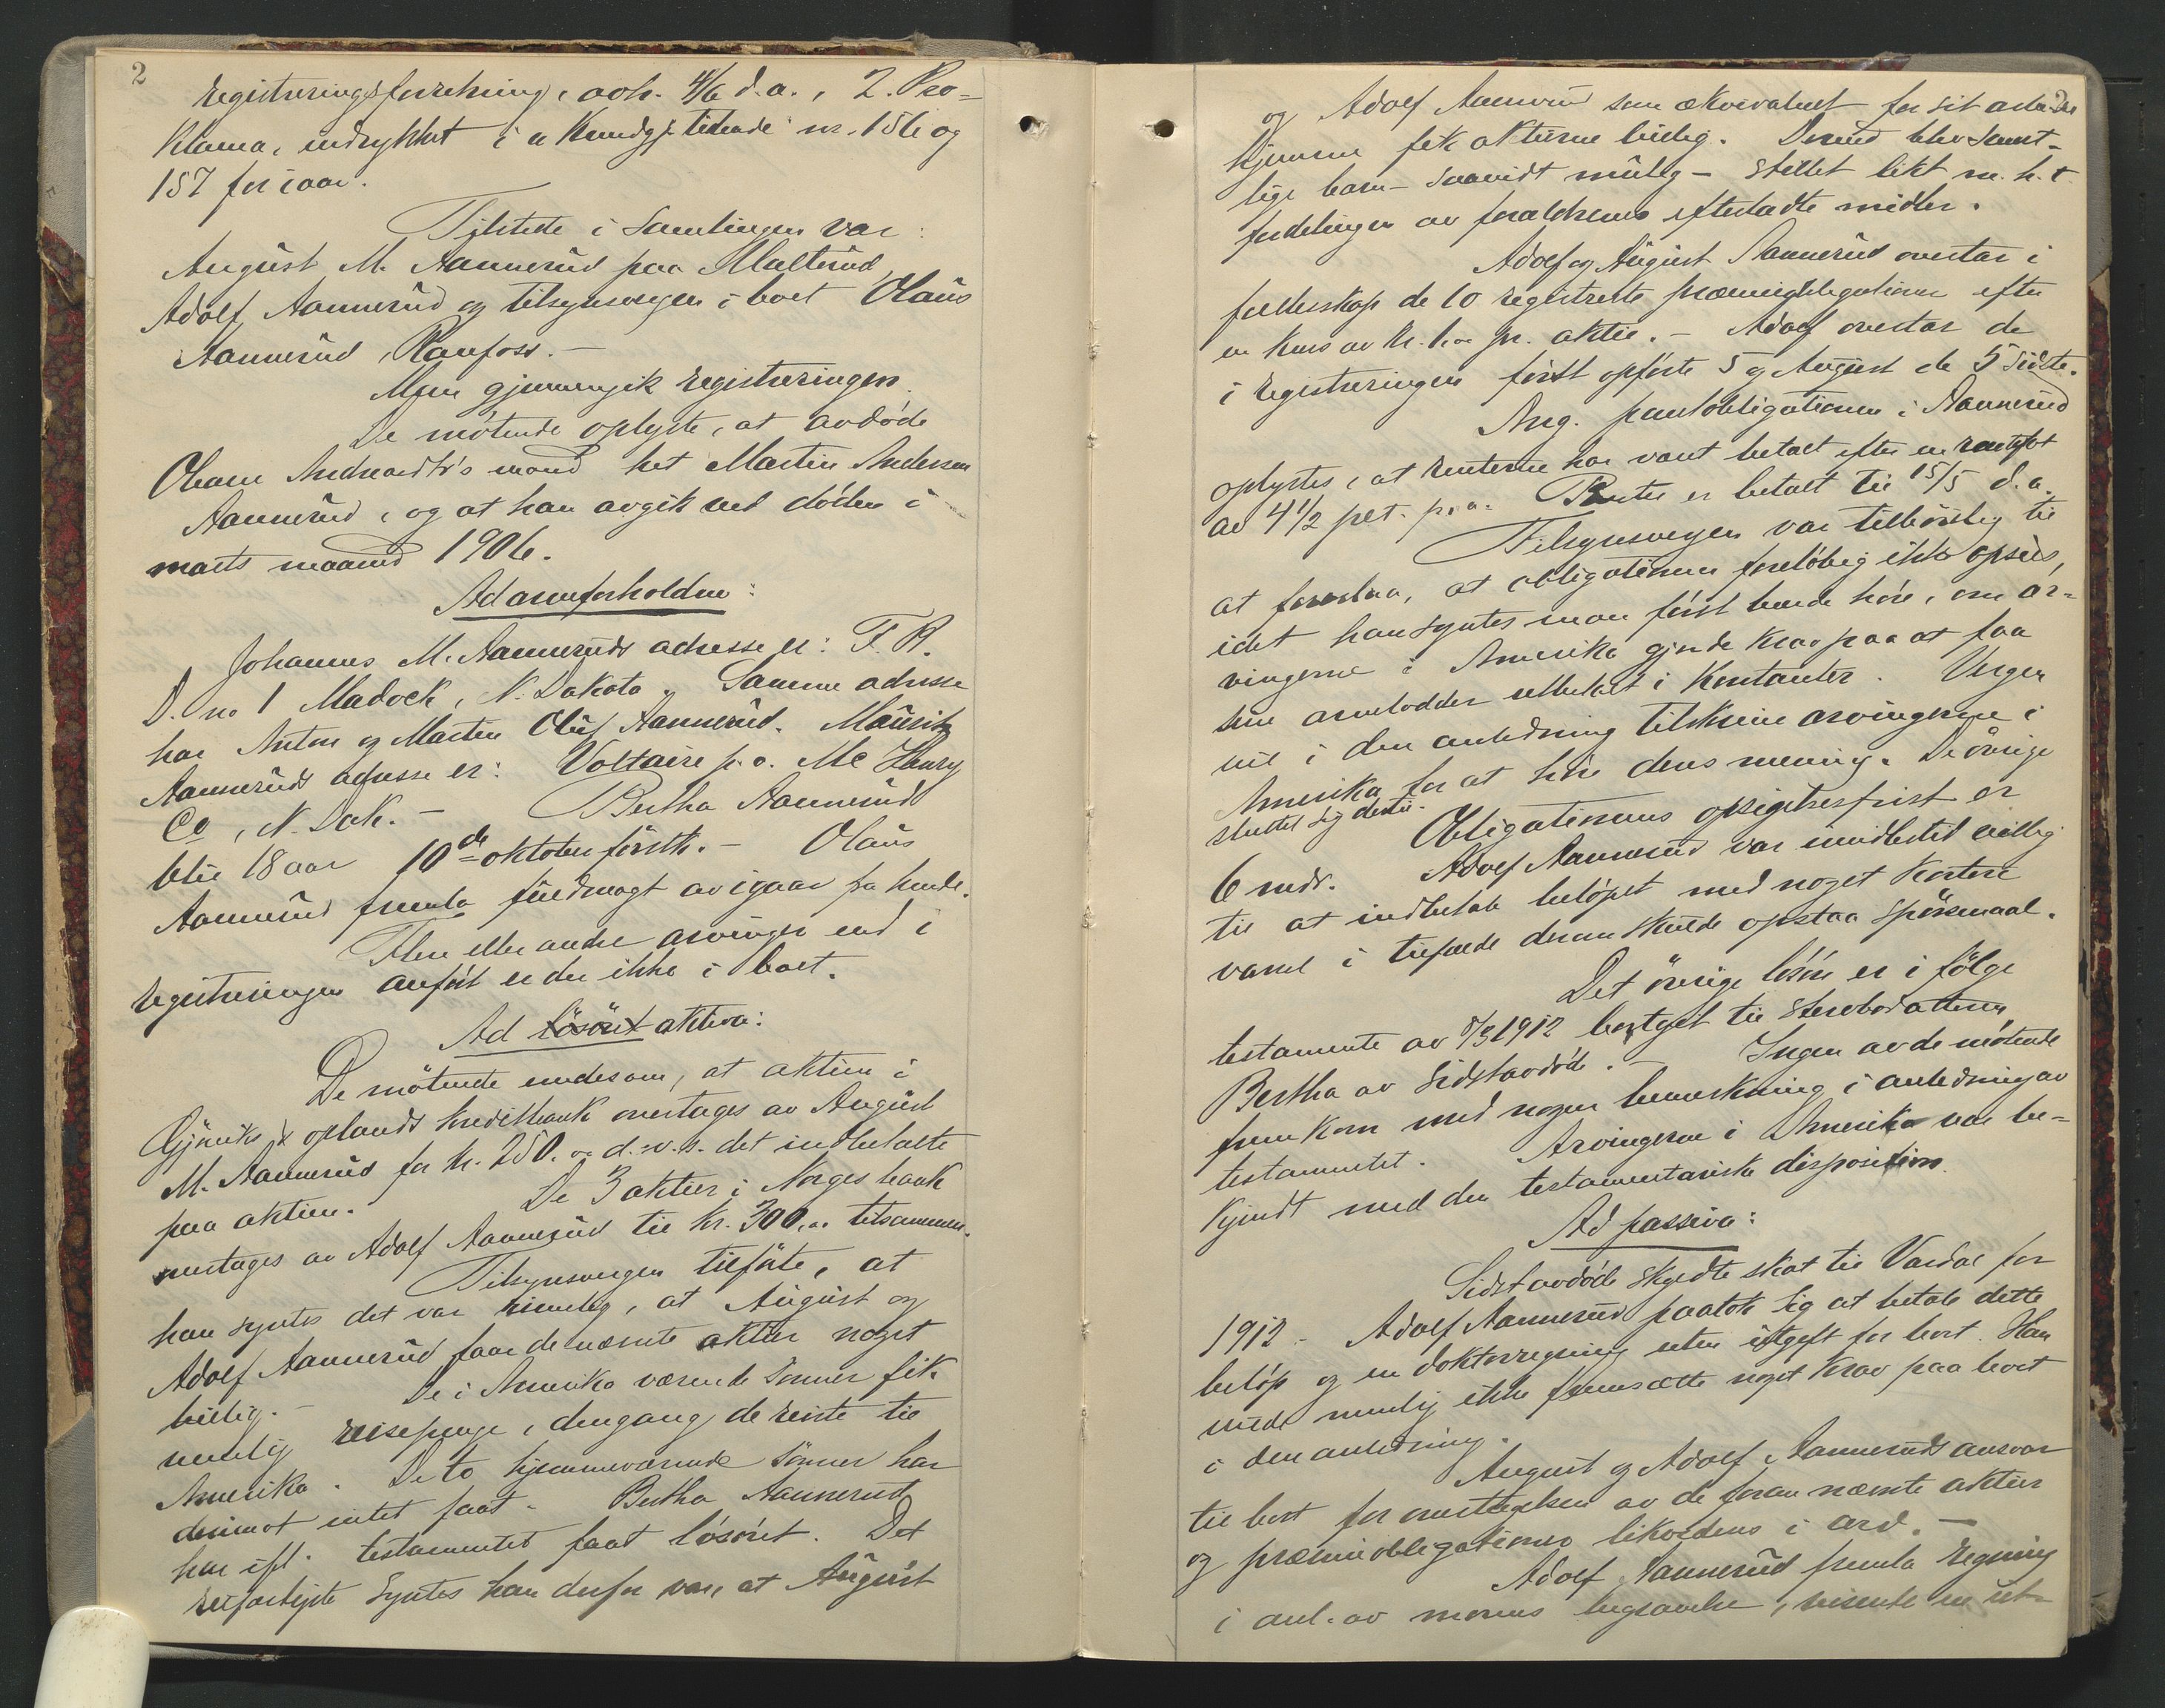 2
registreringsforretning, avh. 4/6 d.a., 2. Pro-
klama, indrykket i "Kundgj. tidende" nr. 156 og
157 for iaar.
Tilstede i samlingen var:
August M. Aannerud paa Malterud,
Adolf Aannerud og tilsynsvergen i boet Olaus
Aannerud, Raufoss. -
Man gjennemgik registreringen.
De møtende oplyste, at avdøde
Oleane Andreasdtr's mand het Martin Andersen
Aannerud, og at han avgik ved døden i
marts maaned 1906.
Ad arveforholdene:
Johannes M. Aanneruds adresse er: F. R.
D. no 1 Madock, N. Dakota. Samme adresse
har Anton og Martin Oluf Aannerud. Mauritz
Aanneruds adresse er: Voltaire p.o. Mc Henry
Co, N. Dak. - Bertha Aannerud
blir 18 aar 10de oktober førstk. - Olaus
Aannerud fremla fuldmagt av igaar fra hende.
Flere eller andre arvinger end i
registreringen anført er der ikke i boet.
Ad løsøret aktiva:
De møtende enedes om, at aktien i
Gjøviks & oplands kreditbank overtages av August
M. Aannerud for kr. 250.00 d.v.s. det indbetalte
paa aktien. De 3 aktier i Norges bank
overtages av Adolf Aannerud til kr. 300,00 tilsammen.
Tilsynsvergen tilføiet, at
han syntes det var rimelig, at August og
Adolf Aannerud faar de nævnte aktier noget
billig. - De i Amerika værende sønner fik
nemlig reisepenge, dengang de reiste til
Amerika. De to hjemmeværende sønner har
derimot intet faat. Bertha Aannerud
har ifl. testamentet faat løsøret. Det
retfærdigste syntes han derfor var, at August
og Adolf Aannerud som ækvivalent for sit arbeide
hjemme fik aktierne billig. Derved blev samt-
lige barn - saavidt mulig - stillet likt m. h. t.
fordelingen av forældrenes efterladte midler.
Adolf og August Aannerud overtar i
fællesskap de 10 registrerte præmieobligationer efter
en kurs av kr. pr. aktie. - Adolf overtar de
i registreringen først opførte 5 og August de 5 sidste.
Ang. pantobligationen i Aannerud
oplystes, at renterne har været betalt efter en rentefot
av 4 1/2 pct. p.a. Renter er betalt til 15/5 d.a.
Tilsynsvergen var tilbøielig til
at foreslaa, at obligationen foreløbig ikke opsies,
idet han syntes man først burde høre, om ar-
vingerne i Amerika gjorde krav paa at faa
sine arvelodder utbetalt i kontanter. Vergen
vil i den anledning tilskrive arvingerne i
Amerika for at høre deres mening. De øvrige
sluttet sig dertil.
Obligationens opsigelsesfrist er
6 mdr. Adolf Aannerud var imidlertid villig
til at indbetale beløpet med noget kortere
varsel i tilfælde derom skulde opstaa spørsmaal.
Det øvrige løsøre er i følge
testamente av 8/3 1912 bortgit til stervbodatteren
Bertha av sidstavdøde. - Ingen av de møtende
fremkom med nogen bemerkning i anledning av
testamentet. Arvingerne i Amerika var be-
kjendt med den testamentariske disposition.
Ad passiva:
Sidstavdøde skyldte skat til Vardal for
1912. - Adolf Aannerud paatok sig at betale dette
beløp og en doktorregning uten utgift for boet. Han
vilde nemlig ikke fremsætte noget krav paa boet
i den anledning.
August og Adolf Aanneruds ansvar
til boet for overtagelsen av de foran nævnte aktier
og præmieobligationer likvideres i arv. -
Adolf Aannerud fremla regning
i anl. av morens begravelse, visende en ut-